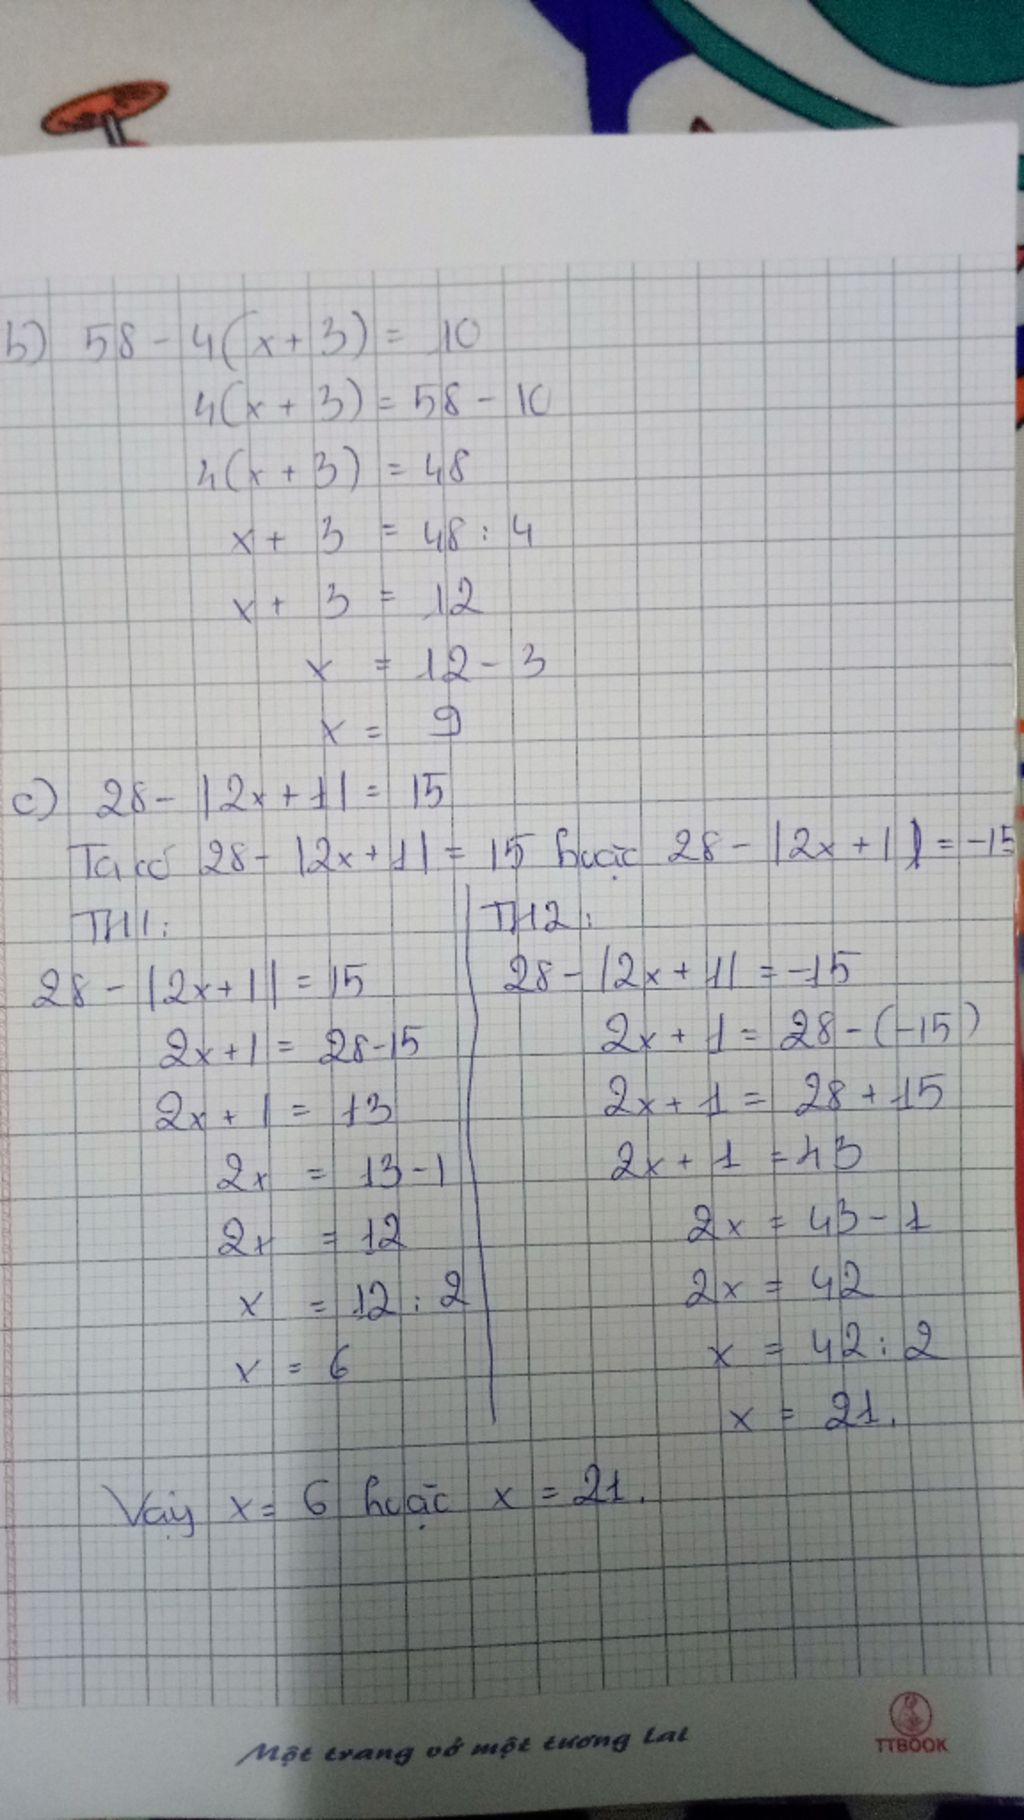 b) 58 - 4(x + 3) = 10
4(x + 3) = 58 - 10
4(x + 3) = 48
x + 3 = 48 : 4
x + 3 = 12
x = 12 - 3
x = 9
c) 28 - |2x + 1| = 15
Ta có 28 - |2x + 1| = 15 hoặc 28 - |2x + 1| = -15
TH1:
28 - |2x + 1| = 15
2x + 1 = 28 - 15
2x + 1 = 13
2x = 13 - 1
2x = 12
x = 12 : 2
x = 6
TH2:
28 - |2x + 1| = -15
2x + 1 = 28 - (-15)
2x + 1 = 28 + 15
2x + 1 = 43
2x = 43 - 1
2x = 42
x = 42 : 2
x = 21.
Vậy x = 6 hoặc x = 21.
Một trang vở một tương lai
TTBOOK